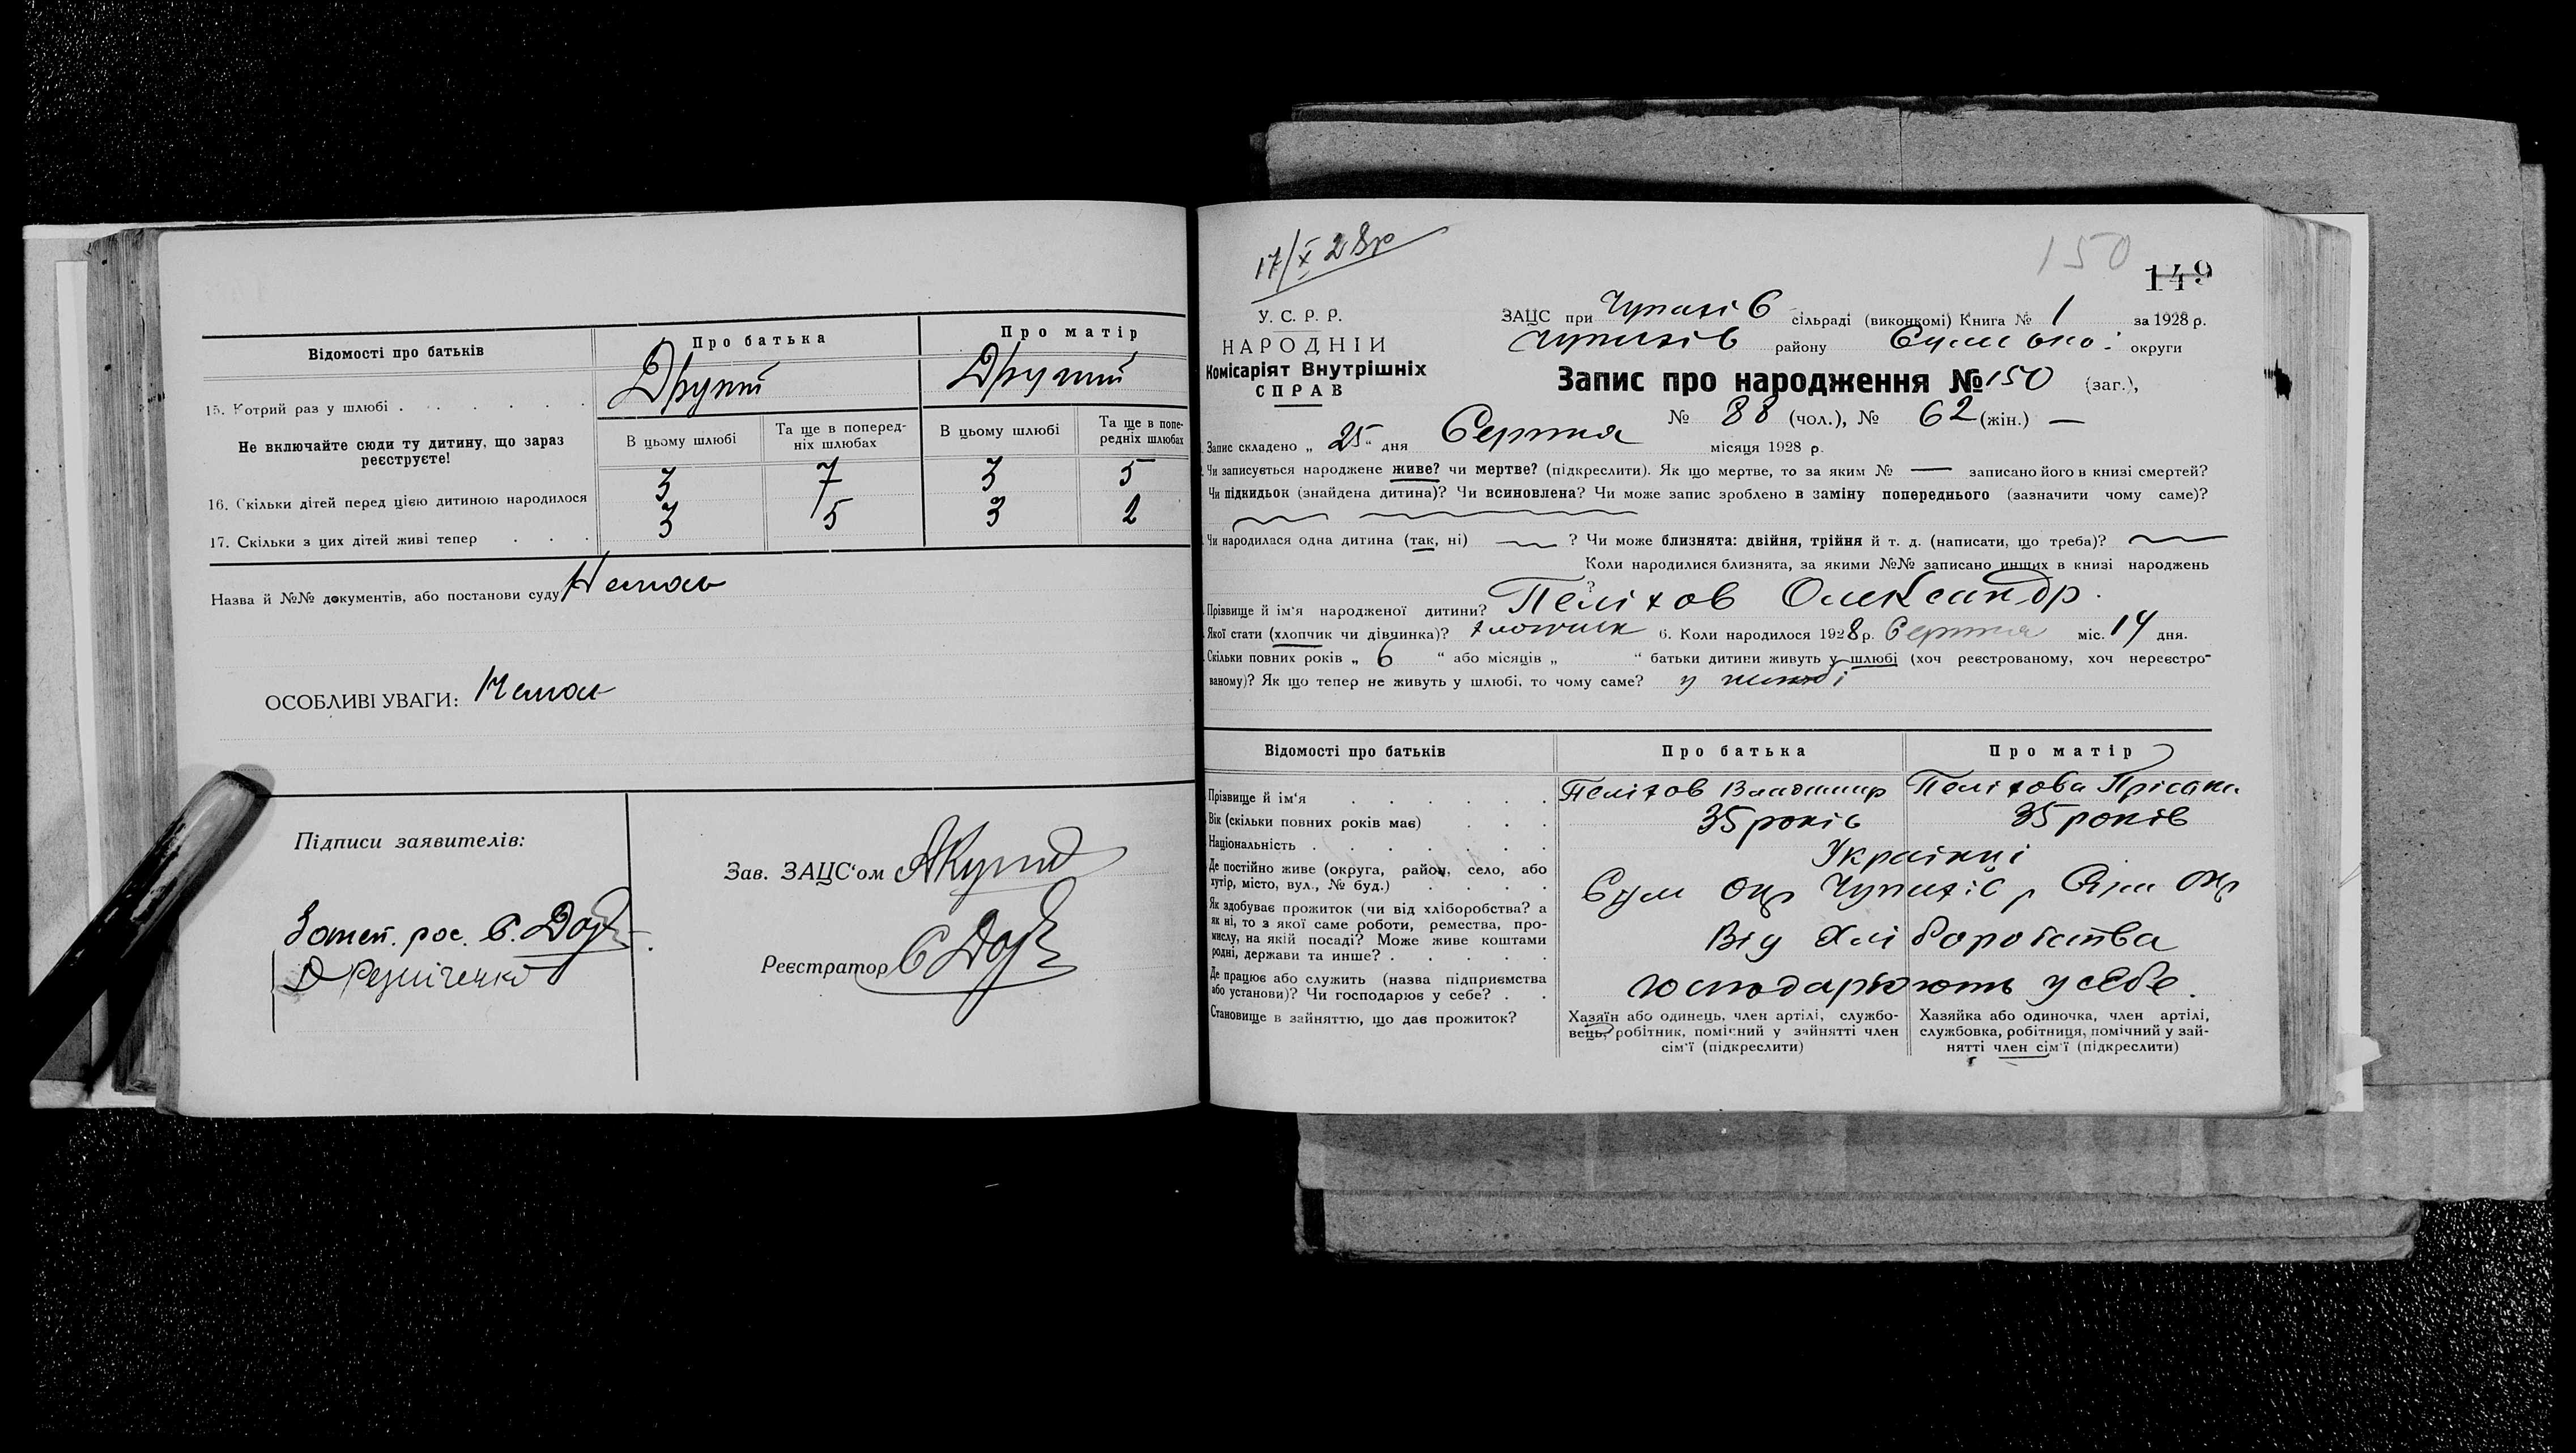 Відомості про батьків
Про батька
Про матір
15. Котрий раз у шлюбі
Другий
Другий
Не включайте сюди ту дитину, що зараз реєструєте!
В цьому шлюбі
Та ще в попередніх шлюбах
В цьому шлюбі
Та ще в попередніх шлюбах
16. Скільки дітей перед цією дитиною народилося
3 7 3 5
17. Скільки з цих дітей живі тепер
3 5 3 2
Назва й №№ документів, або постанови суду Немає
ОСОБЛИВІ УВАГИ: Немає
Підписи заявителів:
Д Резніченко
Зав. ЗАЦС'ом
Реєстратор
17/X 28р
150
149
У. С. Р. Р.
НАРОДНІЙ
Комісаріят Внутрішніх
СПРАВ
ЗАЦС при Чупахів сільраді (виконкомі) Книга № 1 за 1928 р.
Чупахів району Сумської округи
Запис про народження № 150 (заг.),
№ 88 (чол.), № 62 (жін.) —
Запис складено „ 25 “ дня Серпня місяця 1928 р.
Чи записується народжене живе? чи мертве? (підкреслити). Як що мертве, то за яким № — записано його в книзі смертей?
Чи підкидьок (знайдена дитина)? Чи всиновлена? Чи може запис зроблено в заміну попереднього (зазначити чому саме)?
Чи народилася одна дитина (так, ні) ? Чи може близнята: двійня, трійня й т. д. (написати, що треба)?
Коли народилися близнята, за якими №№ записано инщих в книзі народжень
?
Прізвище й ім'я народженої дитини? Пеліхов Олександр.
Якої стати (хлопчик чи дівчинка)? хлопчик 6. Коли народилося 1928 р. Серпня міс. 14 дня.
Скільки повних років „ 6 “ або місяців „ “ батьки дитини живуть у шлюбі (хоч реєстрованому, хоч нереєстро-
ваному)? Як що тепер не живуть у шлюбі, то чому саме? у шлюбі
Відомості про батьків
Про батька
Про матір
Прізвище й ім'я
Пеліхов Владимир
Пеліхова
Вік (скільки повних років має)
35 років
35 років
Національність
Українці
Де постійно живе (округа, район, село, або
хутір, місто, вул., № буд.)
Сум окр Чупахів р
Як здобуває прожиток (чи від хліборобства? а
як ні, то з якої саме роботи, ремества, про-
мислу, на якій посаді? Може живе коштами
родні, держави та инше?
Від Хліборобства
Де працює або служить (назва підприємства
або установи)? Чи господарює у себе?
господарюють у себе.
Становище в зайняттю, що дає прожиток?
Хазяїн або одинець, член артілі, службо-
вець, робітник, помічний у зайнятті член
сім'ї (підкреслити)
Хазяйка або одиночка, член артілі,
службовка, робітниця, помічний у зай-
нятті член сім'ї (підкреслити)